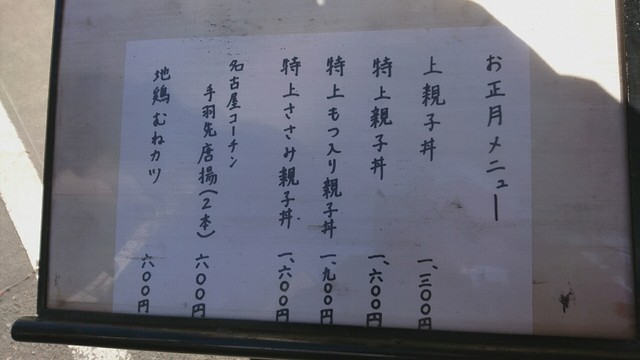 お正月メニュー
上親子丼 一、三〇〇円
特上親子丼 一、六〇〇円
特上もつ入り親子丼 一、九〇〇円
特上ささみ親子丼 一、六〇〇円
名古屋コーチン
手羽先唐揚(2本) 六〇〇円
地鶏むねカツ 六〇〇円